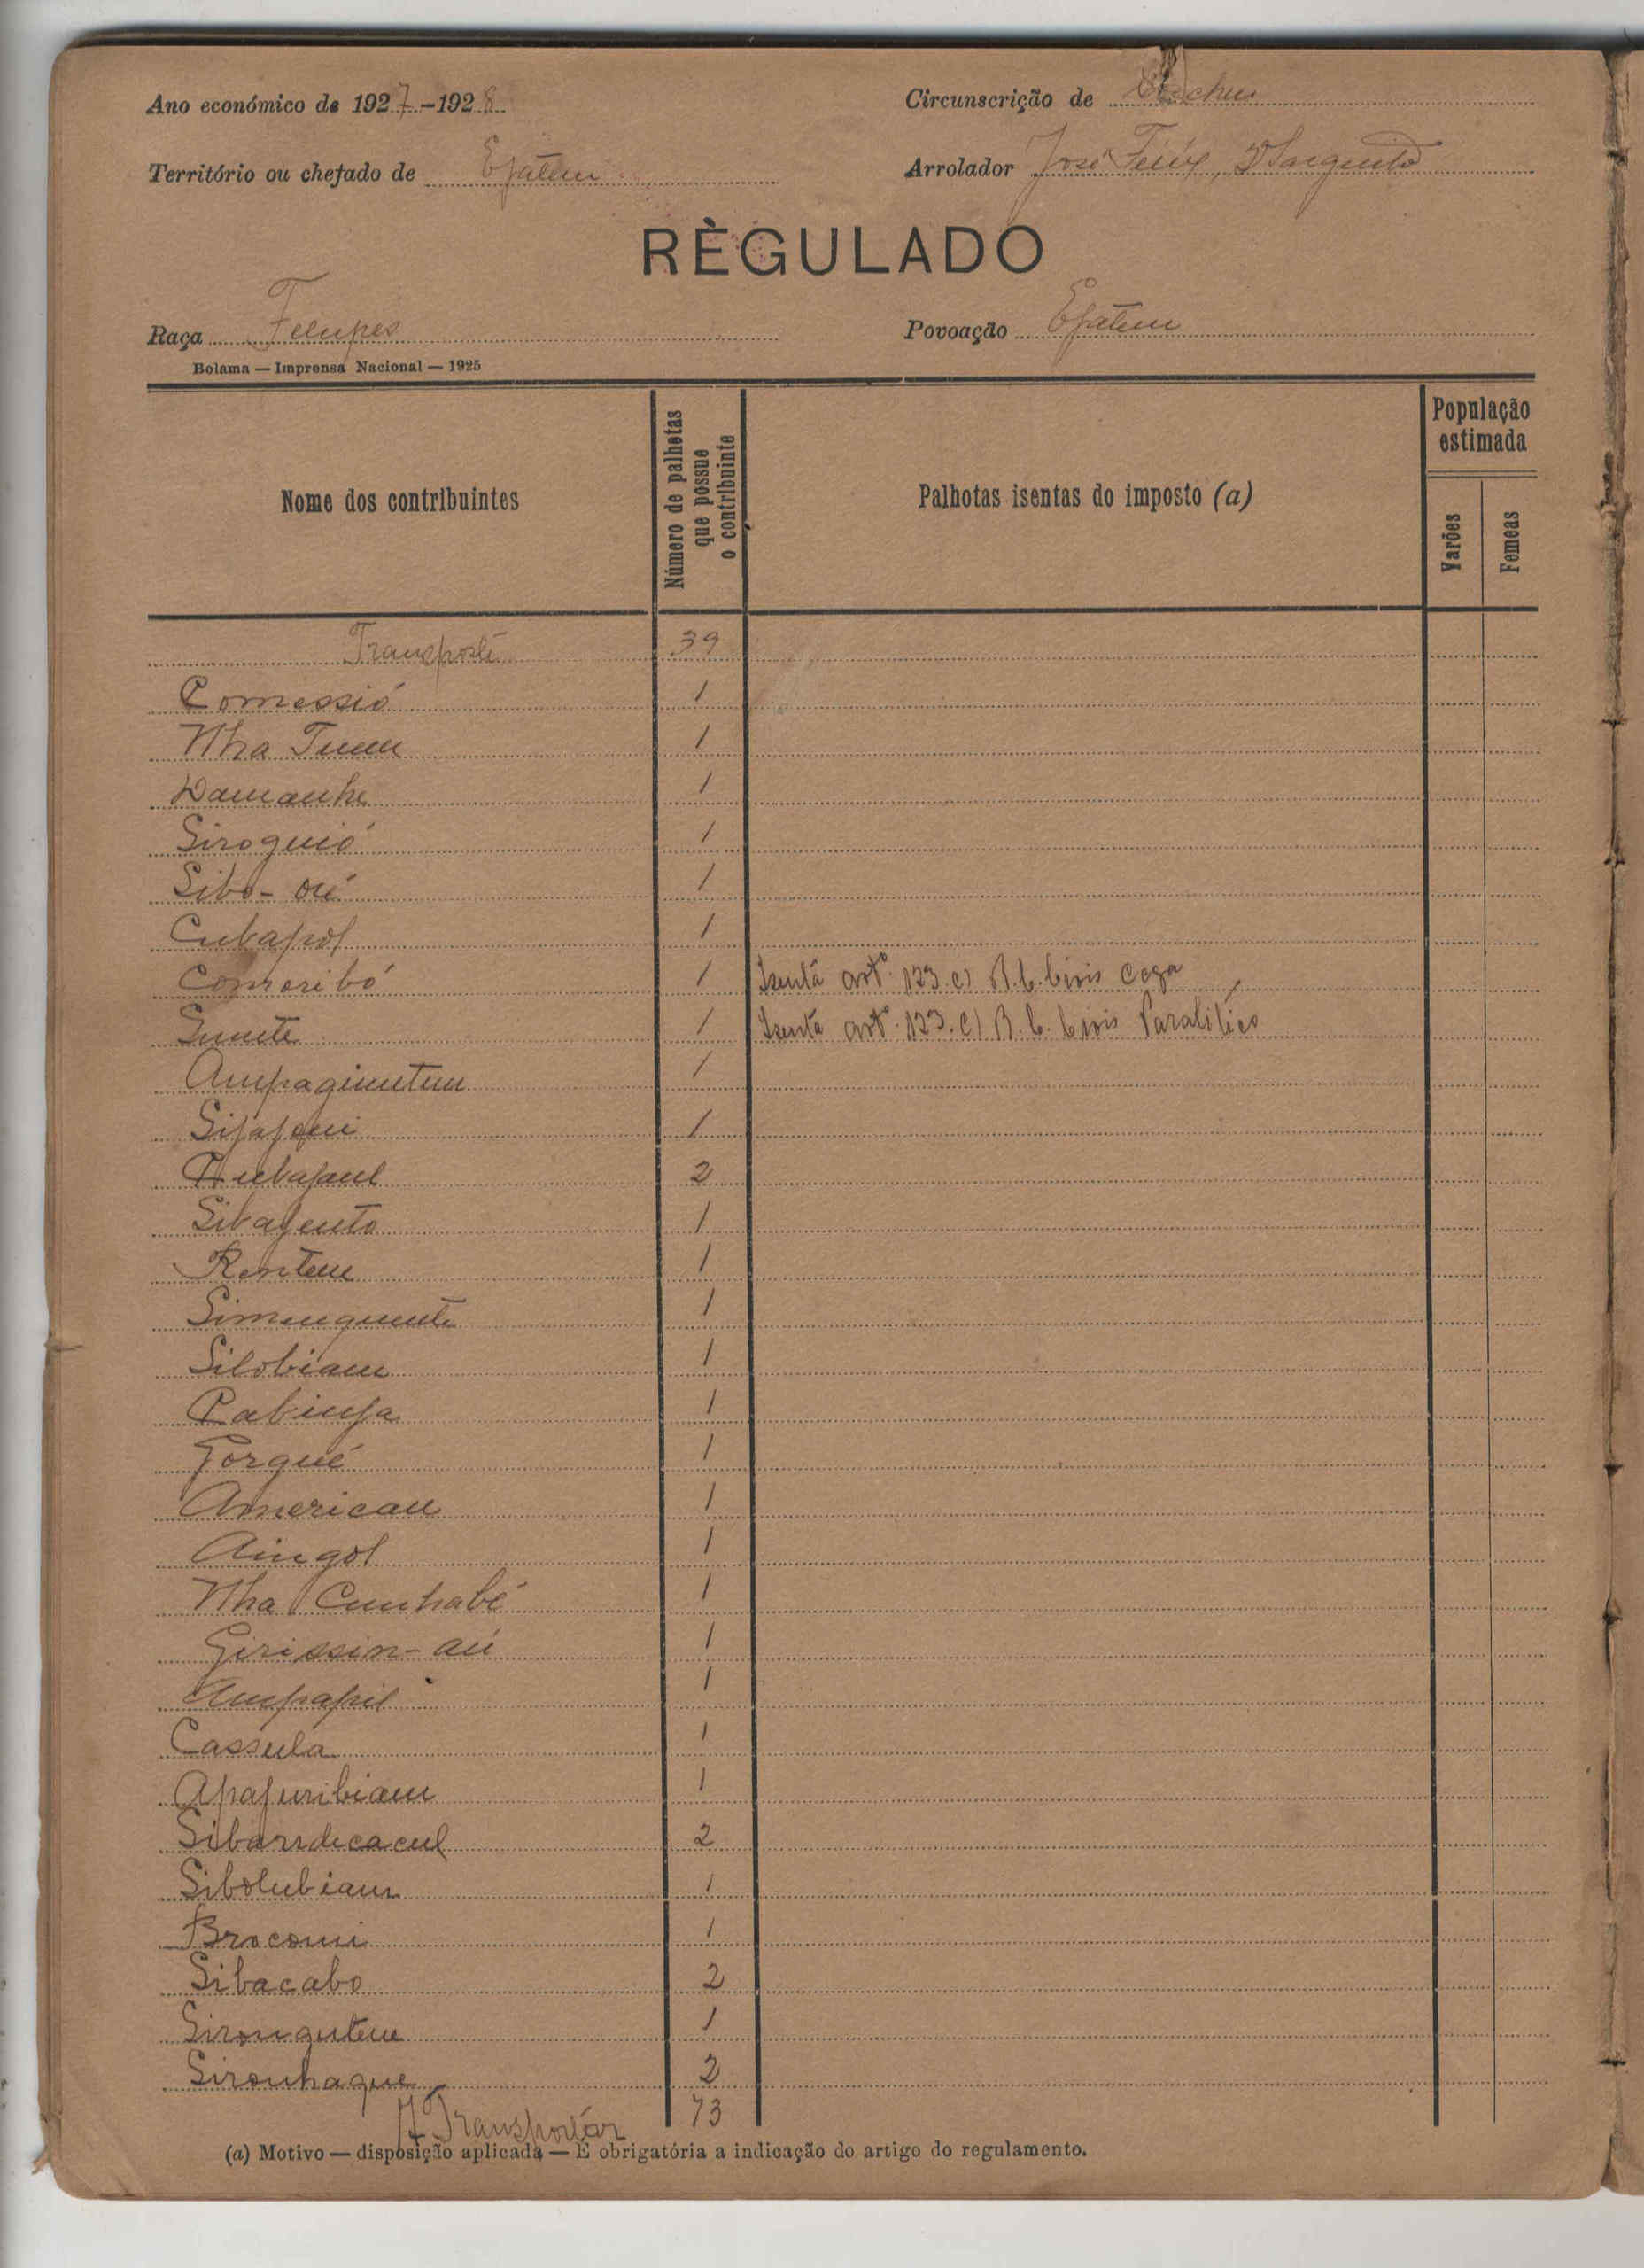 Ano económico de 1927-1928
Circunscrição de
Território ou chefado de Efatem
Arrolador José Felix, 2º Sargento
RÈGULADO
Raça Felupes
Povoação Efatem
Bolama — Imprensa Nacional — 1925
Nome dos contribuintes
Número de palhotas que possue o contribuinte
Palhotas isentas do imposto (a)
População estimada
Varões
Femeas
Transporte 39
Comessió 1
Nha Tuem 1
Damanhe 1
Siroguió 1
Sibo-oié 1
Cubapol 1
Comoribó 1 Isenta artº 123. c) R.C. Civis Cega
Sunite 1 Isenta artº 123. c) R.C. Civis Paralitico
Ampaginutum 1
1
2
Sibajento 1
Rentem 1
1
Silobiam 1
Pabinja 1
Jorqué 1
American 1
Aingol 1
Nha Cunhabé 1
Girissin-aú 1
Ampapil 1
Cassula 1
Apajuribiam 1
Sibarrdecacul 2
Sibolubiam 1
Brocomi 1
Sibacabo 2
Sirongutem 1
Sironhaque 2
A Transportar 73
(a) Motivo — disposição aplicada — É obrigatória a indicação do artigo do regulamento.